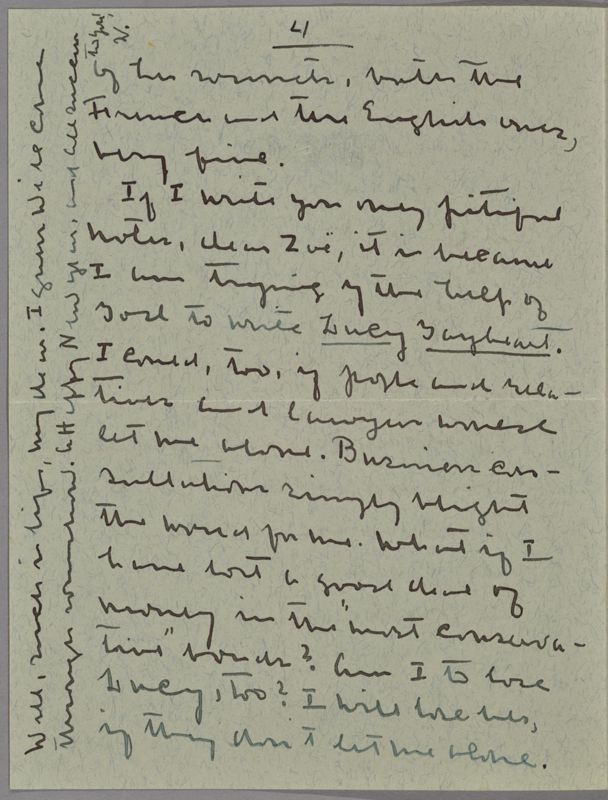 4
of her records, both the
French and the English ones,
very fine.
If I write you only pitiful
notes, dear Zoë, it is because
I am trying by the help of
God to write Lucy Gayheart.
I could, too, if people and rela-
tives and lawyers would
let me alone. Business con-
sultations simply blight
the world for me. What if I
have lost a good deal of
money in the "most conserva-
tive" bonds? Am I to lose
Lucy, too? I will lose her,
if they don't let me alone.
Well, such is life, my dear. I guess We'll come
through somehow. A Happy New Year, and all success
to you!
W.